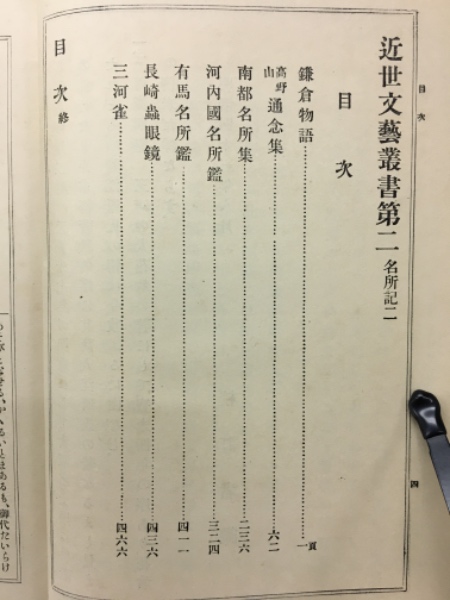 目次
四
近世文藝叢書第二 名所記二
目次
鎌倉物語……一頁
高野山通念集……六二
南都名所集……二三六
河內國名所鑑……三二四
有馬名所鑑……四一一
長崎蟲眼鏡……四三六
三河雀……四六六
目次終